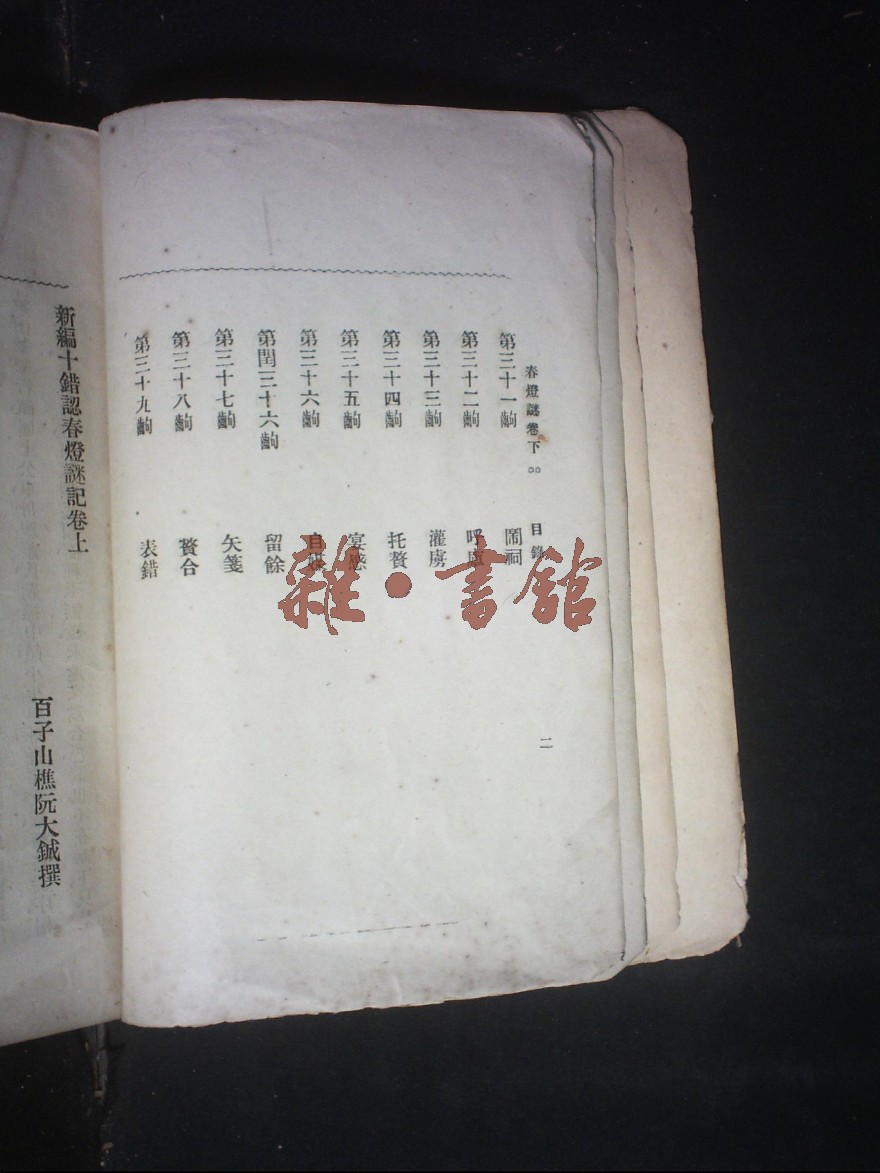 春燈謎卷下 目錄 二
第三十一齣 鬧祠
第三十二齣 呼
第三十三齣 灌虜
第三十四齣 托贅
第三十五齣 宴感
第三十六齣 自媒
第閏三十六齣 留餘
第三十七齣 矢箋
第三十八齣 贅合
第三十九齣 表錯
新編十錯認春燈謎記卷上
百子山樵阮大鋮撰
雜·書館